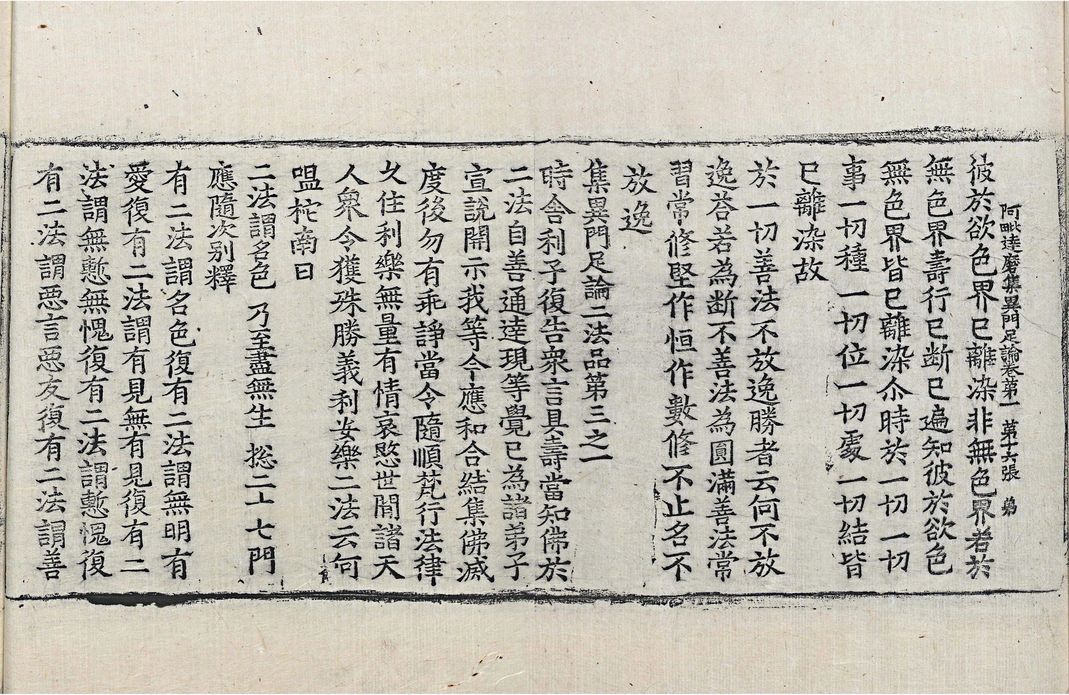 阿毗達磨集異門足論卷第一 第十六張 弟
彼於欲色界已離染非無色界者於
無色界壽行已断已遍知彼於欲色
無色界皆已離染尒時於一切一切
事一切種一切位一切處一切結皆
已離染故
於一切善法不放逸勝者云何不放
逸荅若為断不善法為圓滿善法常
習常修堅作恒作數修不止名不
放逸
集異門足論二法品第三之一
時舍利子復告衆言具壽當知佛於
二法自善通達現等覺已為諸弟子
宣說開示我等今應和合結集佛滅
度後勿有乖諍當令隨順梵行法律
久住利樂無量有情哀愍世間諸天
人衆令獲殊勝義利安樂二法云何
嗢柁南曰
二法謂名色 乃至盡無生 惣二十七門
應隨次別釋
有二法謂名色復有二法謂無明有
愛復有二法謂有見無有見復有二
法謂無慙無愧復有二法謂慙愧復
有二法謂惡言惡友復有二法謂善